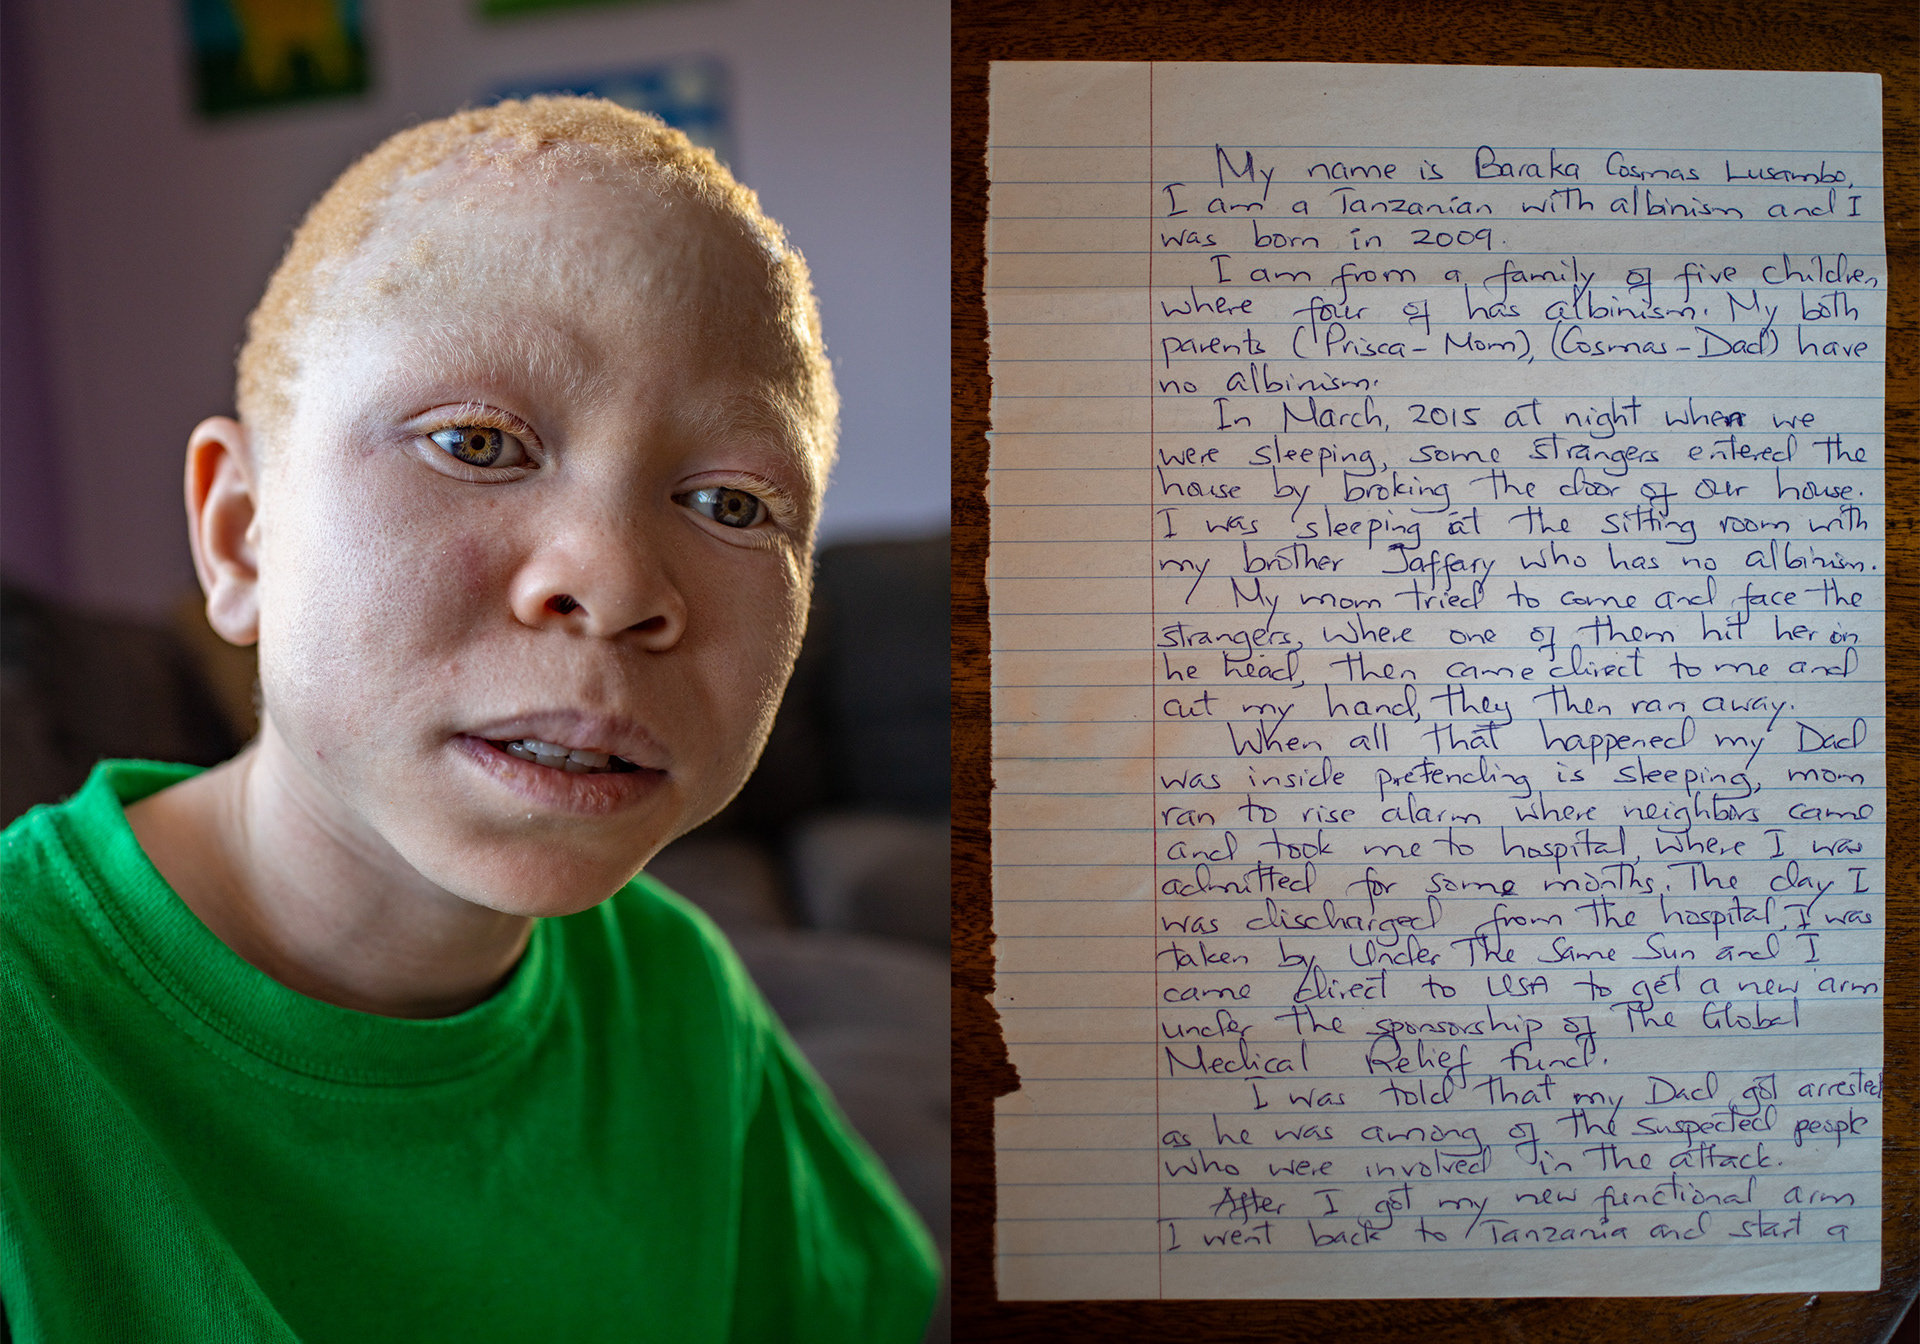 My name is Baraka Cosmas Lusambo,
I am a Tanzanian with albinism and I
was born in 2009.
I am from a family of five children,
where four of has albinism. My both
parents (Prisca - Mom), (Cosmas - Dad) have
no albinism.
In March, 2015 at night when we
were sleeping, some strangers entered the
house by broking the door of our house.
I was sleeping at the sitting room with
my brother Jaffary who has no albinism.
My mom tried to come and face the
strangers, where one of them hit her on
he head, then came direct to me and
cut my hand, they then ran away.
When all that happened my Dad
was inside pretending is sleeping, mom
ran to rise alarm where neighbors came
and took me to hospital, where I was
admitted for some months. The day I
was discharged from the hospital, I was
taken by Under The Same Sun and I
came direct to USA to get a new arm
under the sponsorship of The Global
Medical Relief Fund.
I was told that my Dad got arrested
as he was among of the suspected people
who were involved in the attack.
After I got my new functional arm
I went back to Tanzania and start a